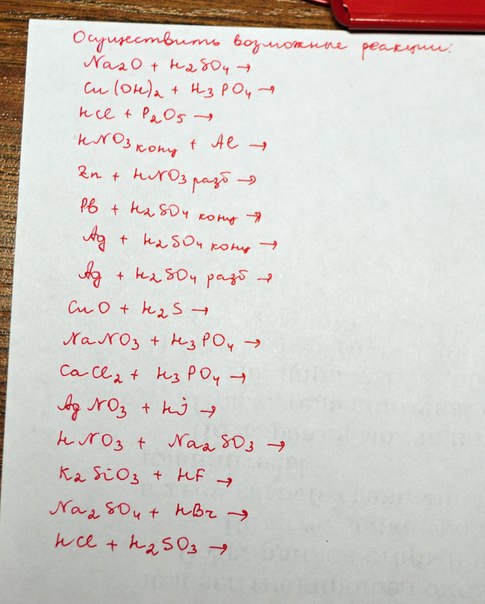 Осуществить возможные реакции:
Na2O + H2SO4 →
Cu(OH)2 + H3PO4 →
HCl + P2O5 →
HNO3 конц + Al →
Zn + HNO3 разб →
Pb + H2SO4 конц →
Ag + H2SO4 конц →
Ag + H2SO4 разб →
CuO + H2S →
NaNO3 + H3PO4 →
CaCl2 + H3PO4 →
AgNO3 + HJ →
HNO3 + Na2SO3 →
K2SiO3 + HF →
Na2SO4 + HBr →
HCl + H2SO3 →